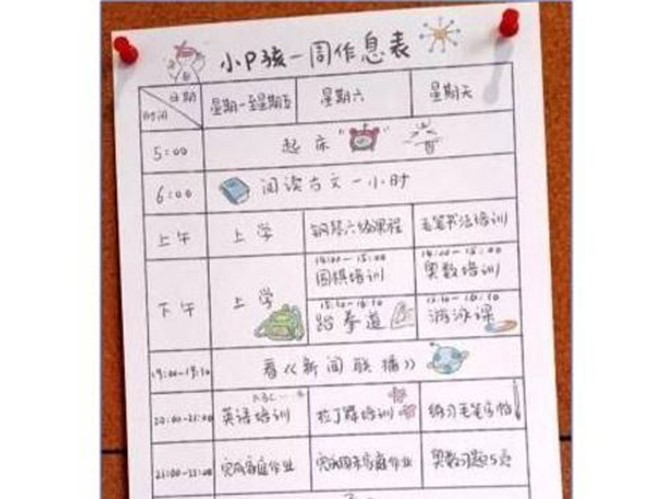 小P孩一周作息表
日期
时间
星期一至星期五 星期六 星期天
5:00 起床
6:00 阅读古文一小时
上午 上学 钢琴六级课程 毛笔书法培训
下午 上学
14:00-15:00
围棋培训
14:00-15:00
奥数培训
15:10-16:10
跆拳道
15:10-16:10
游泳课
看《新闻联播》
ABC
英语培训 拉丁舞培训 练习毛笔字帖
完成家庭作业 完成周末家庭作业 奥数习题5页